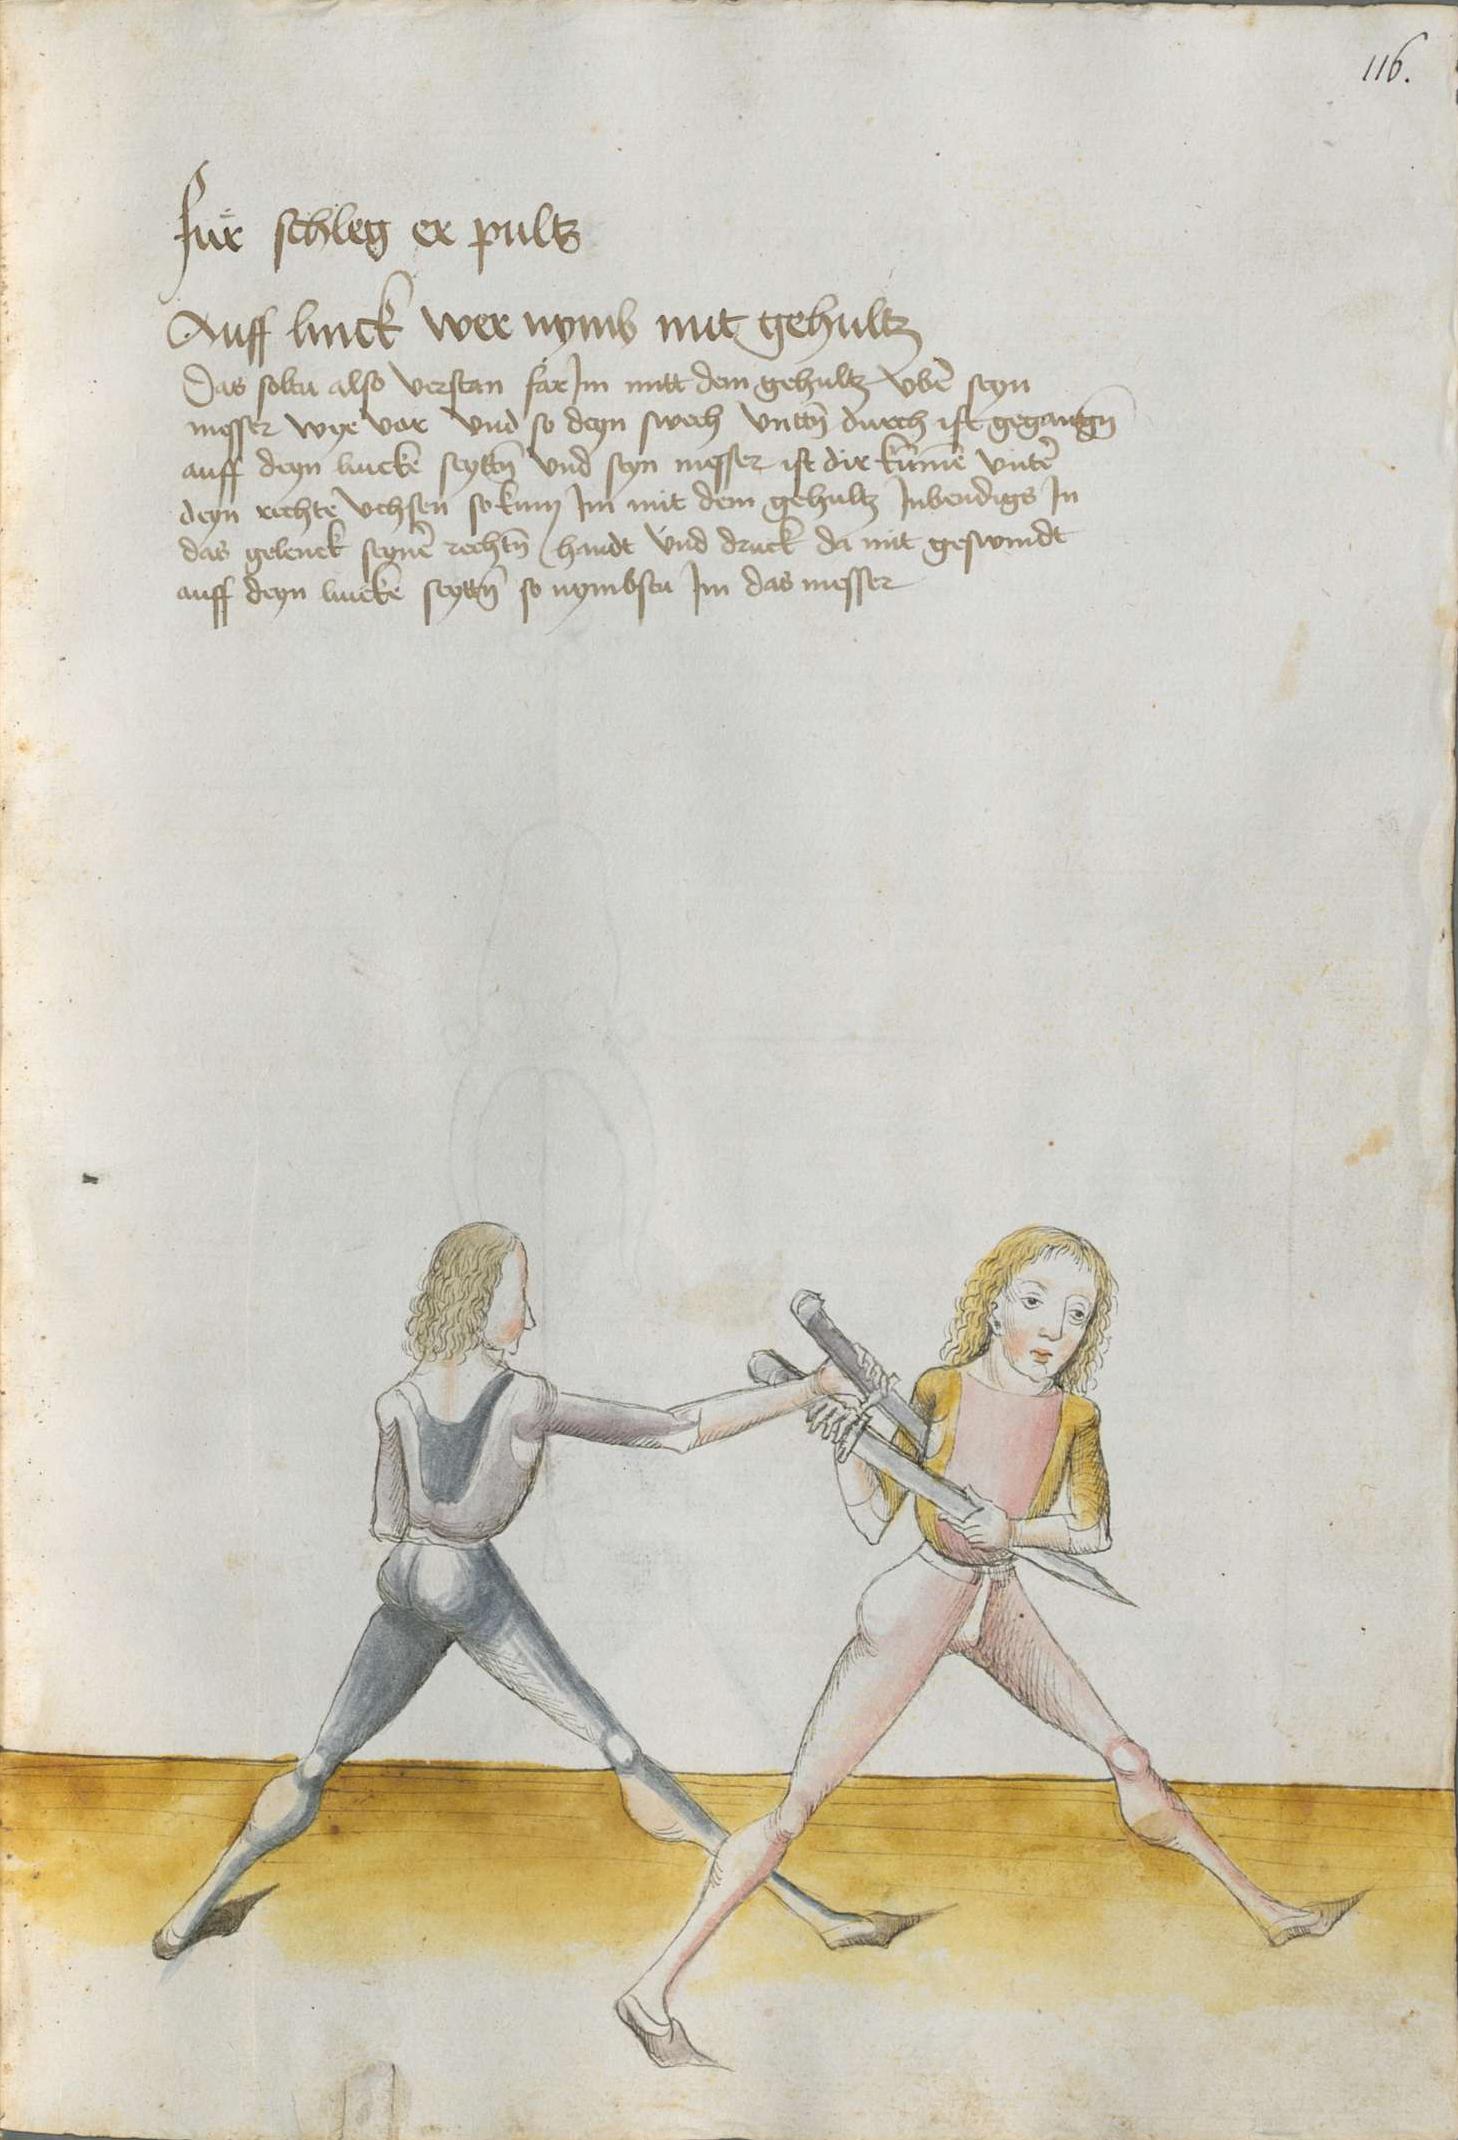 116.
für schleg er pultz
Auff linck wer nymb mit gehultz
Das soltu also verstan far Im mitt dem gehultz vbe͂ seyn
messer wye vor vnd so deyn swech vntt͂n durch ist gegang͂n
auff deyn lincke͂ seytt͂n vnd seyn messer ist dir ku͂me͂ vnte͂r
deyn rechte͂ vchsen so kum Im mit dem gehultz Inbendigs In
das gelenck seyne͂r recht͂n handt vnd druck da mit geswindt
auff deyn lincke͂ seytt͂n so nymbstu Im das messer